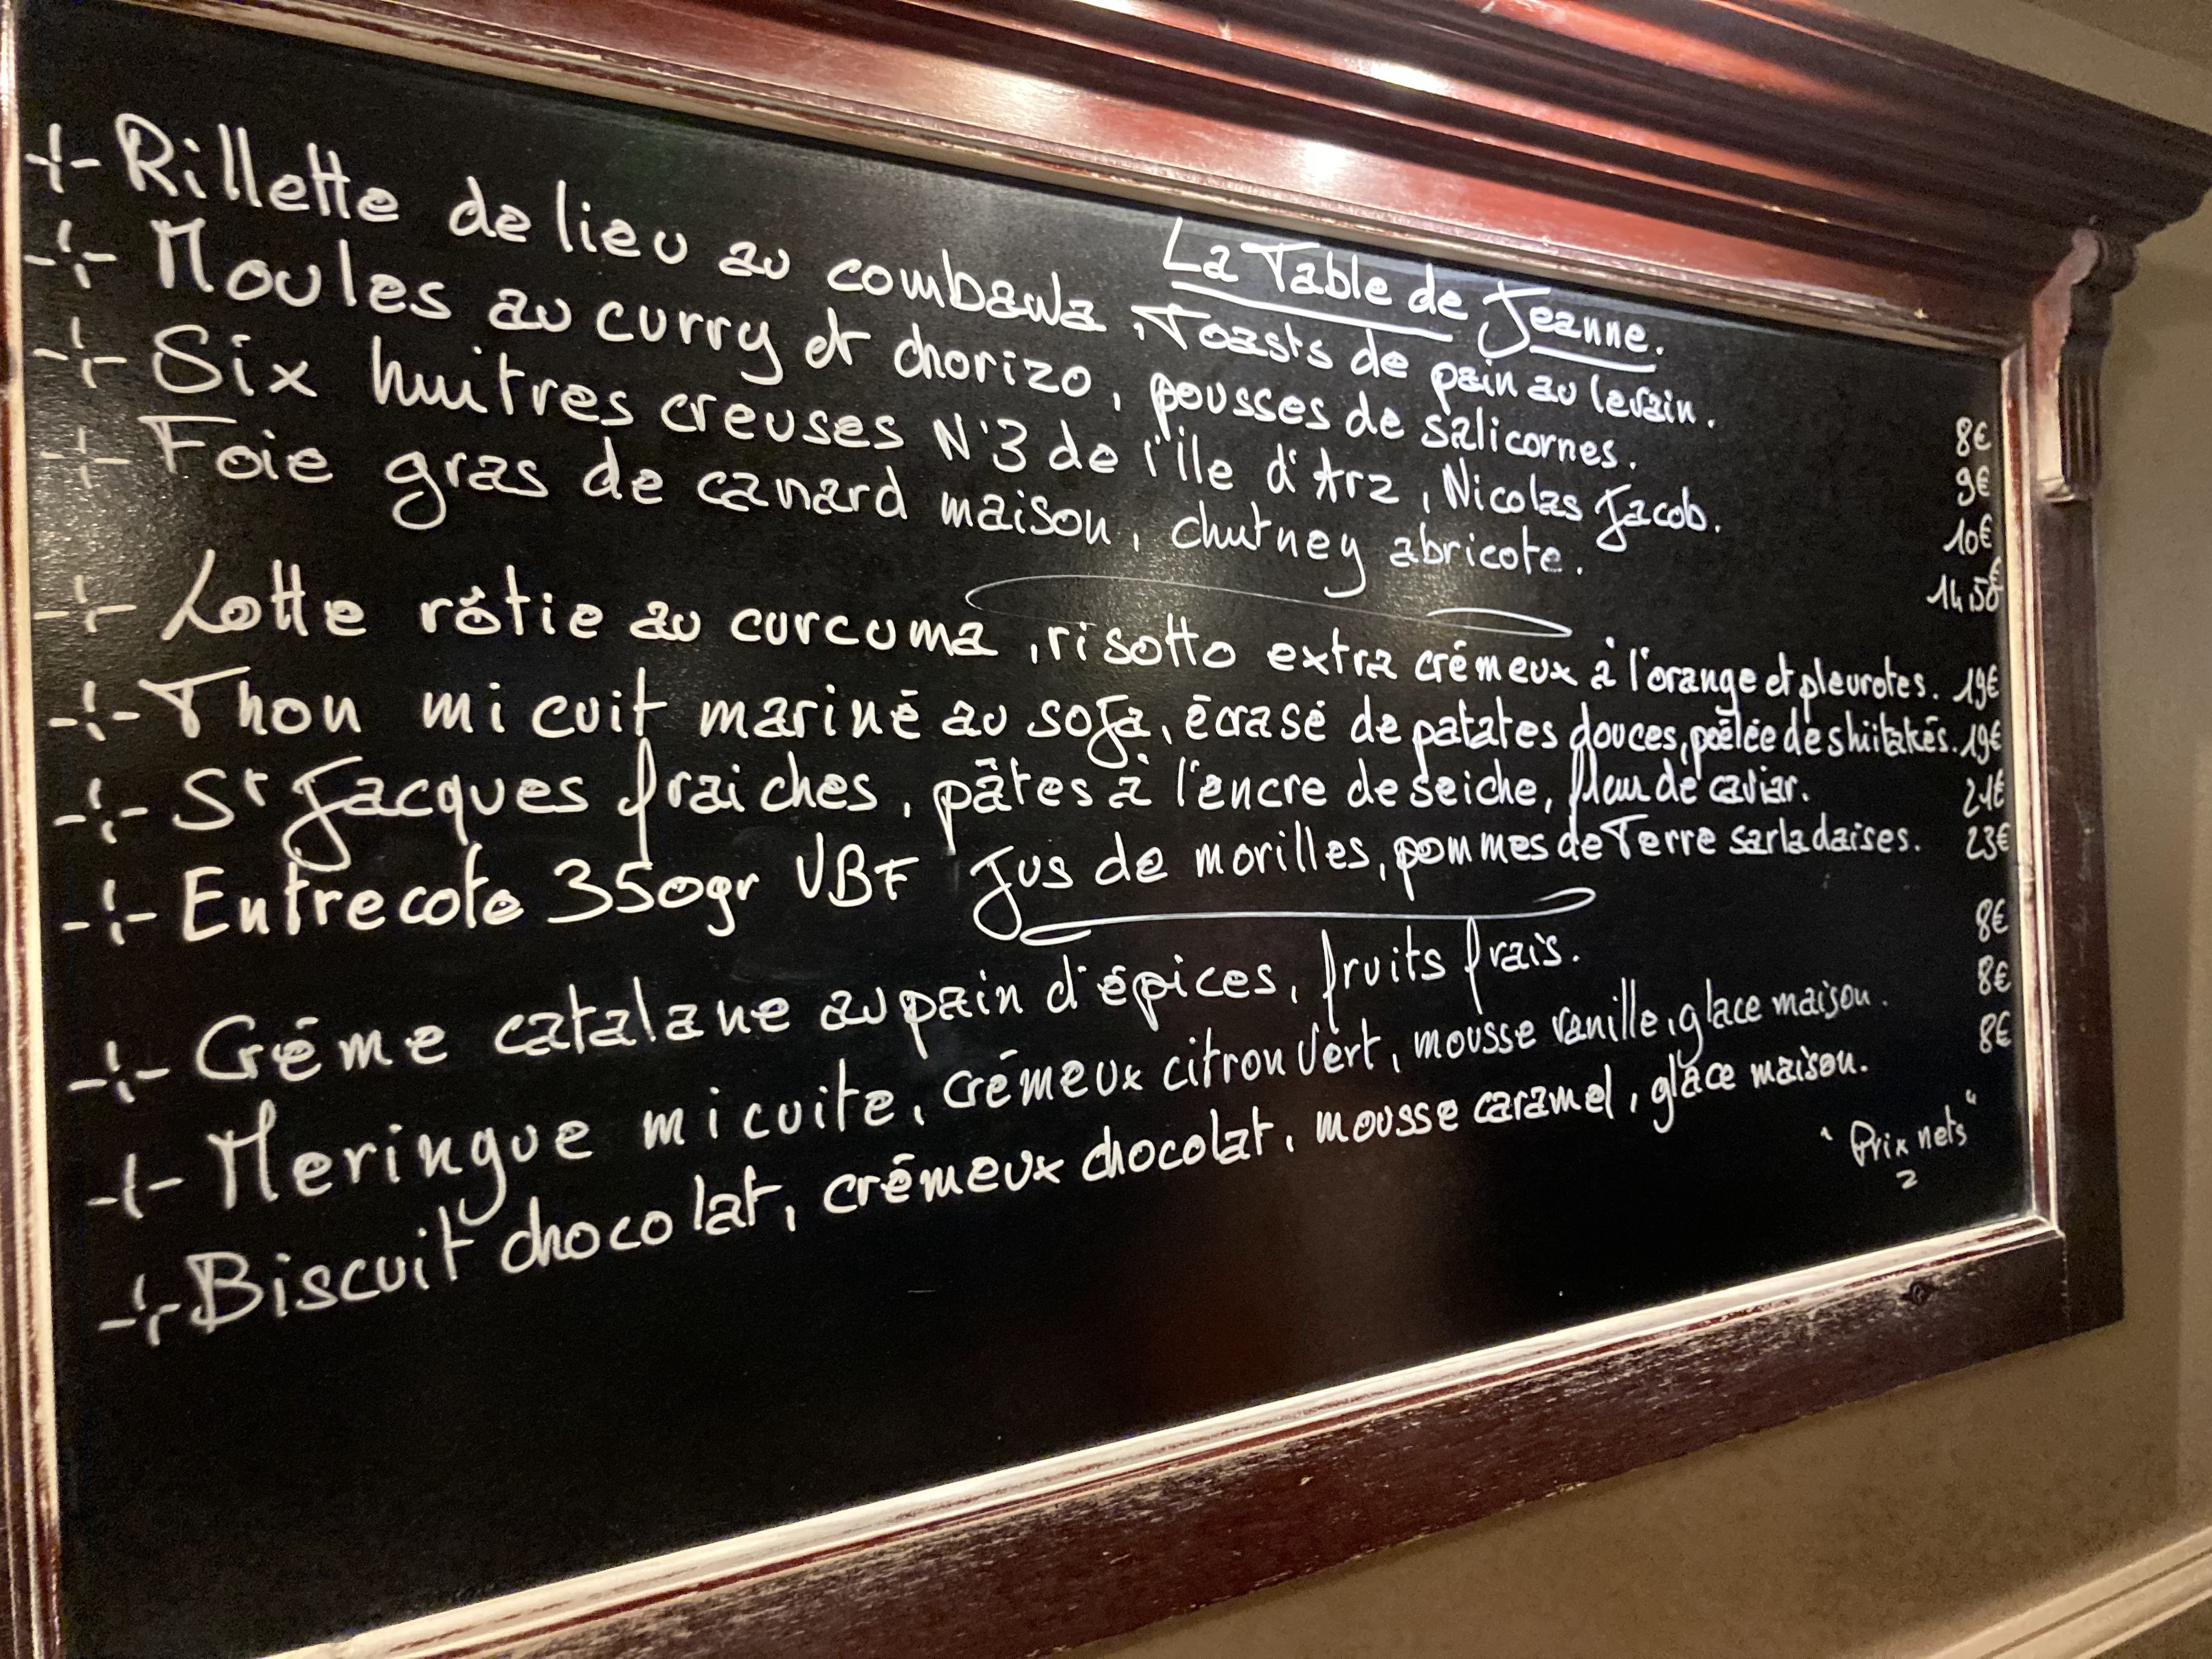 La Table de Jeanne.
-:- Rillette de lieu au combawa, Toasts de pain au levain. 8€
-:- Moules au curry et chorizo, pousses de salicornes. 9€
-:- Six huitres creuses N°3 de l'ile d'Arz, Nicolas Jacob. 10€
-:- Foie gras de canard maison, chutney abricote. 14,50€
-:- Lotte rôtie au curcuma, risotto extra crémeux à l'orange et pleurotes. 19€
-:- Thon mi cuit mariné au soja, écrasé de patates douces, poêlée de shiitakés. 19€
-:- St Jacques fraiches, pâtes à l'encre de seiche, flan de caviar. 21€
-:- Entrecote 350gr VBF Jus de morilles, pommes de Terre sarladaises. 23€
-:- Créme catalane au pain d'épices, fruits frais. 8€
-:- Meringue mi cuite, crémeux citron vert, mousse vanille, glace maison. 8€
-:- Biscuit chocolat, crémeux chocolat, mousse caramel, glace maison. 8€
"Prix nets"